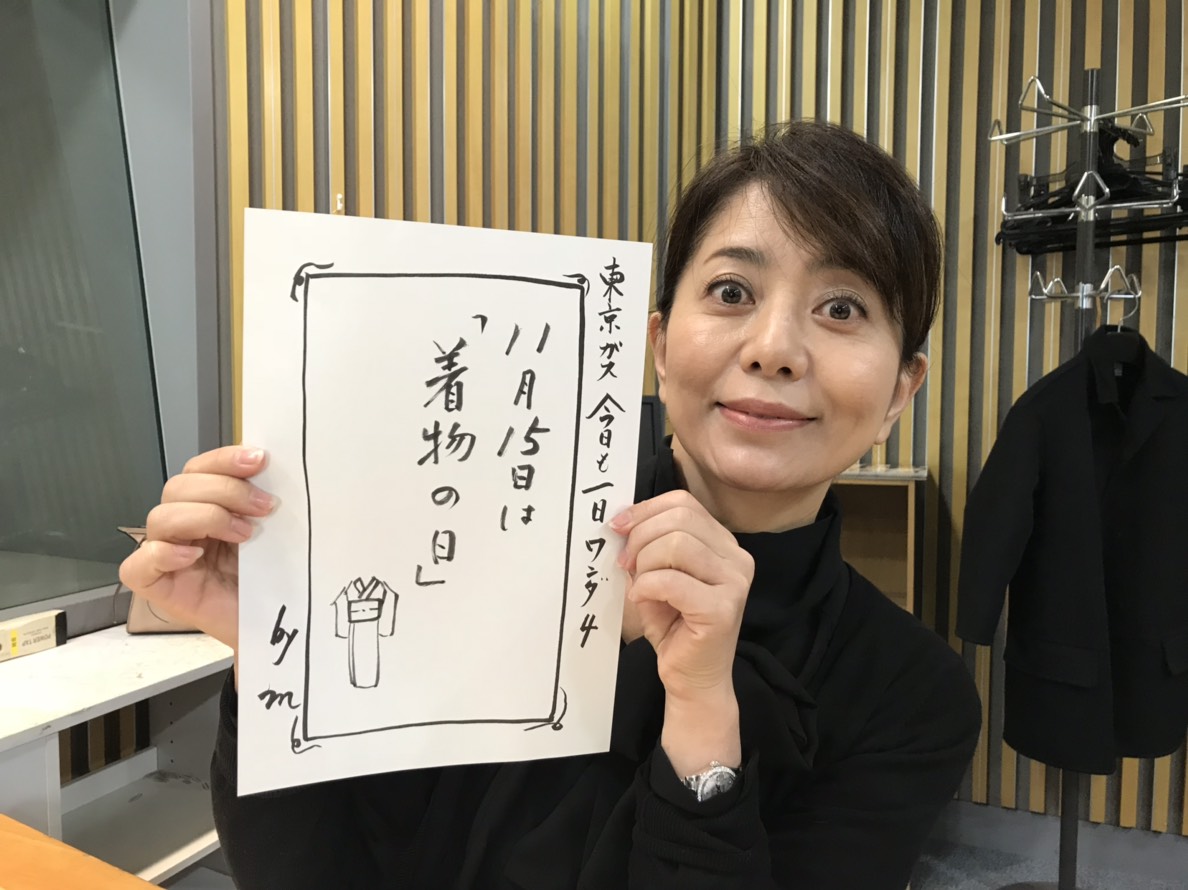 東京ガス 今日も一日ワンダ4
11月15日は
「着物の日」
by m
POWER TAP